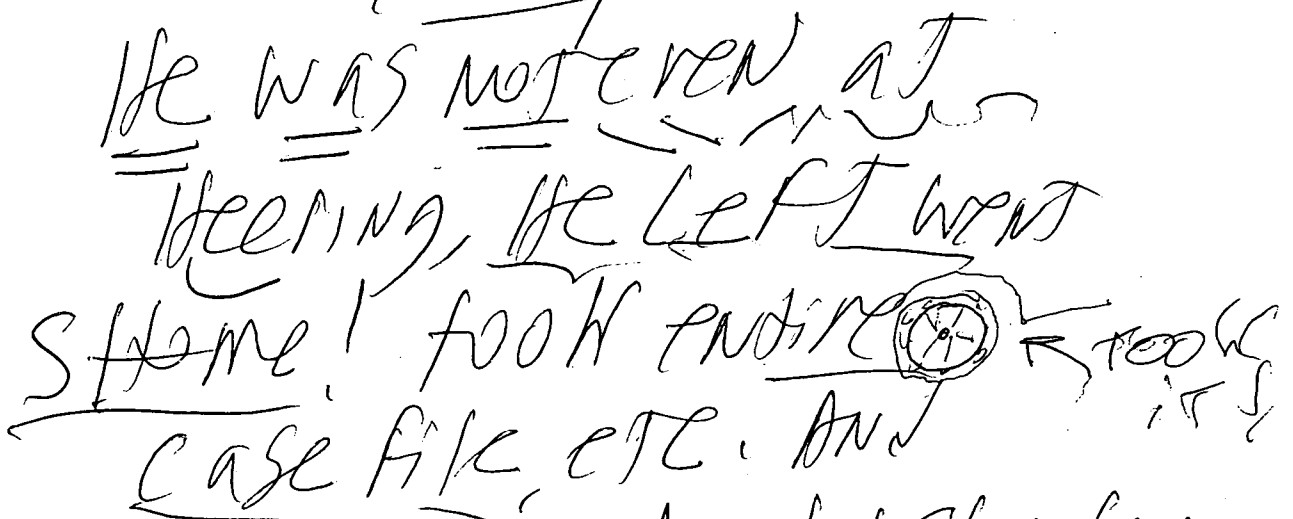 He was not even at
Heering, He Left went
Home! took entire
case file, etc. And